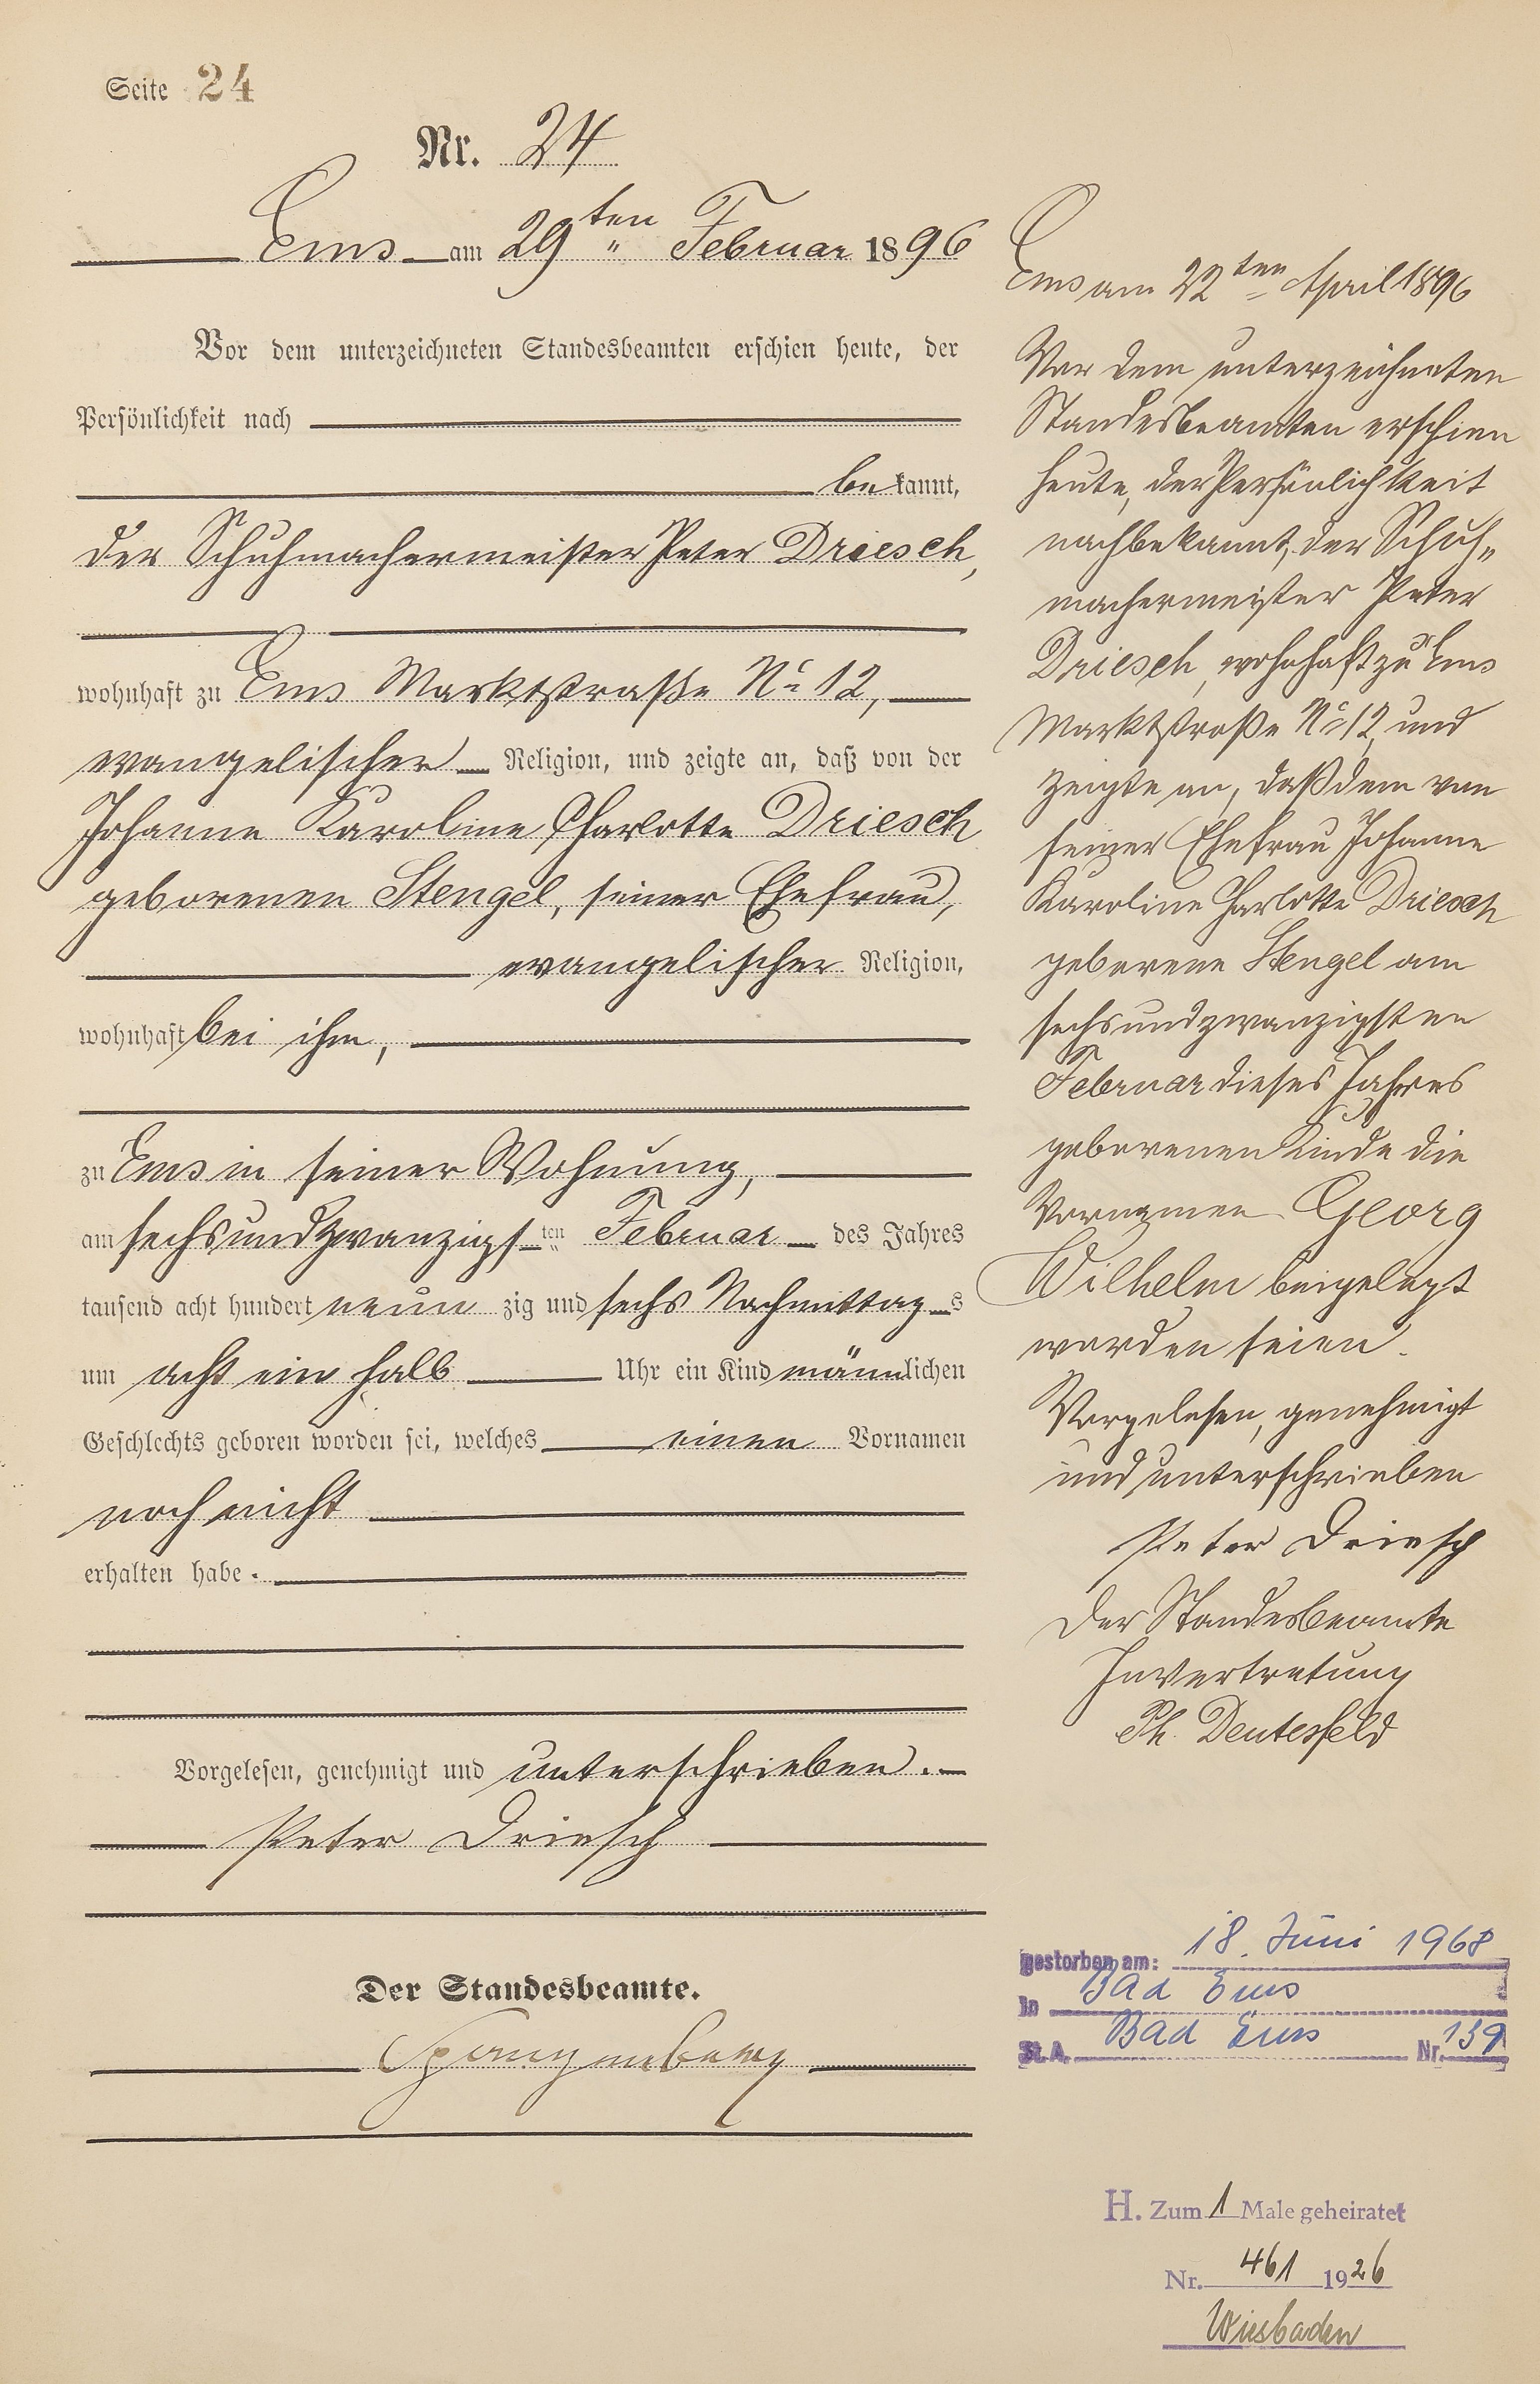 Seite 24
Nr. 24
Ems am 29ten Februar 1896
Vor dem unterzeichneten Standesbeamten erschien heute, der
Persönlichkeit nach
bekannt,
der Schuhmachermeister Peter Driesch,
wohnhaft zu Ems Marktstraße No 12,
evangelischer Religion, und zeigte an, daß von der
Johanne Karoline Charlotte Driesch
geborenen Stengel, seiner Ehefrau,
evangelischer Religion,
wohnhaft bei ihm,
zu Ems in seiner Wohnung,
am sechsundzwanzigsten Februar des Jahres
tausend acht hundert neunzig und sechs Nachmittags
um acht ein halb Uhr ein Kind männlichen
Geschlechts geboren worden sei, welches einen Vornamen
noch nicht
erhalten habe.
Vorgelesen, genehmigt und unterschrieben.
Peter Driesch
Der Standesbeamte.
Spangenberg
Ems am 22ten April 1896
Vor dem unterzeichneten
Standesbeamten erschien
heute, der Persönlichkeit
nach bekannt, der Schuh„
machermeister Peter
Driesch, wohnhaft zu Ems
Marktstraße No 12 und
zeigte an, daß dem von
seiner Ehefrau Johanne
Karoline Charlotte Driesch
geborene Stengel am
sechsundzwanzigsten
Februar dieses Jahres
geborenen Kinde die
Vornamen Georg
Wilhelm beigelegt
worden seien.
Vorgelesen, genehmigt
und unterschrieben
Peter Driesch
Der Standesbeamte
In Vertretung
Ph. Deutesfeld
gestorben am: 18. Juni 1968
in Bad Ems
St.A. Bad Ems Nr. 139
H. Zum 1 Male geheiratet
Nr. 461 1926
Wiesbaden